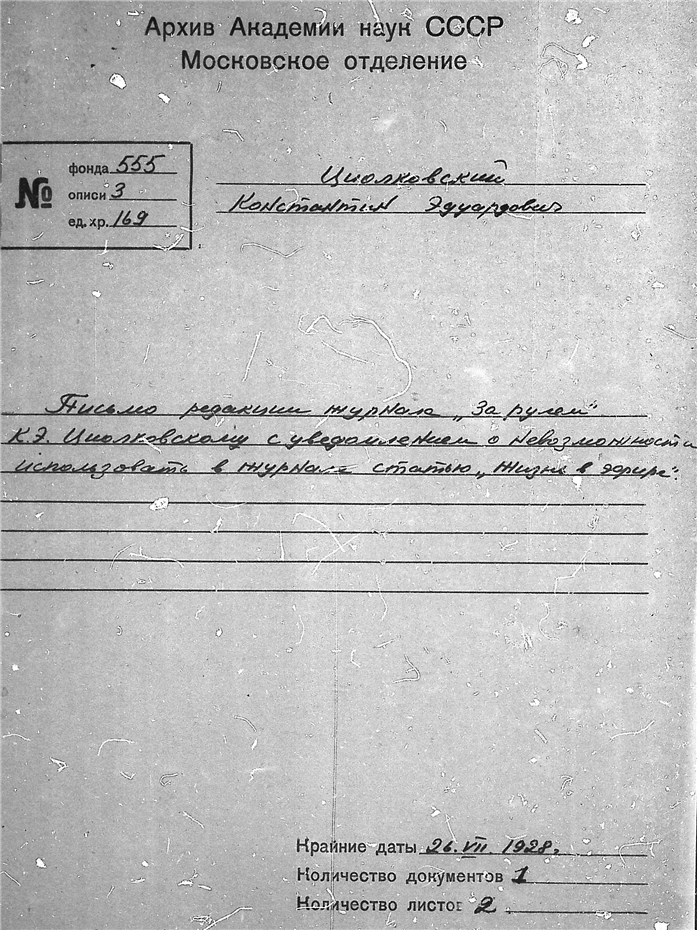 Архив Академии наук СССР
Московское отделение
№
фонда 555
описи 3
ед. хр. 169
Циолковский
Константин Эдуардович
Письмо редакции журнала „За рулем"
К.Э. Циолковскому с уведомлением о невозможности
использовать в журнале статью „Жизнь в эфире".
Крайние даты 26.VII. 1928г
Количество документов 1
Количество листов 2